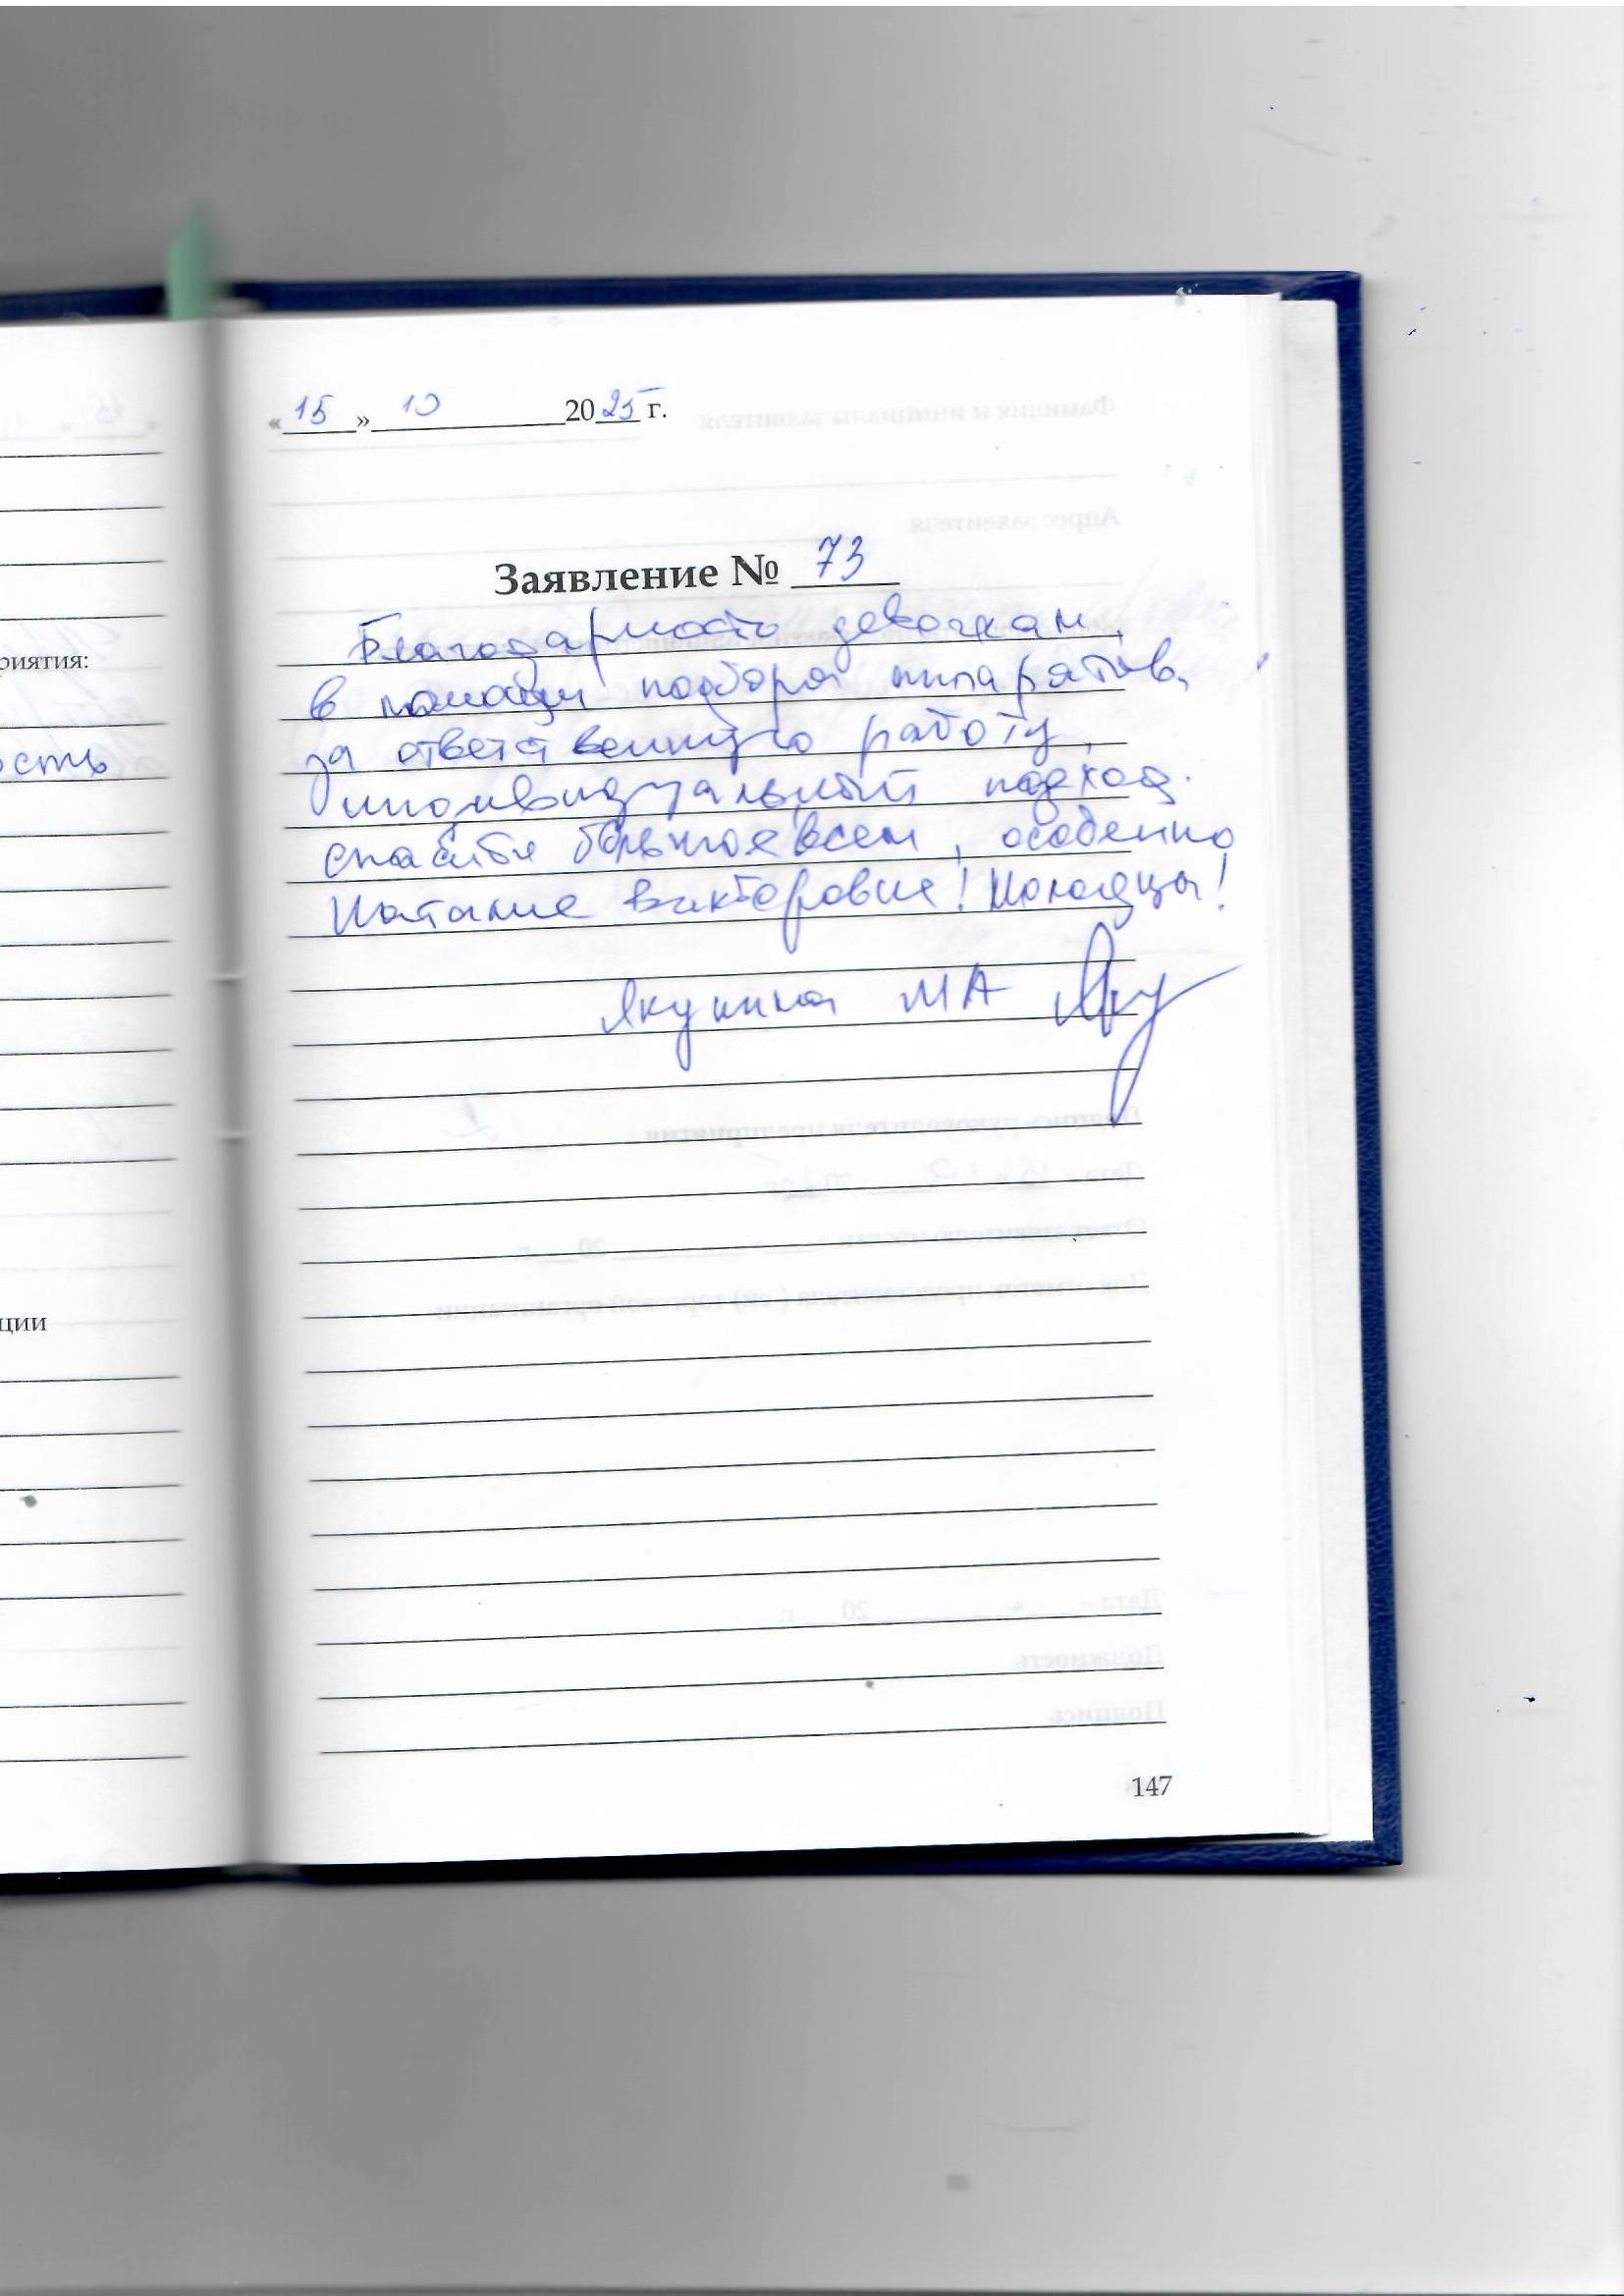 «15» 10 2025 г.
Заявление № 73
Благодарность девочкам,
в помощи подбора аппаратов,
за ответственную работу,
индивидуальный подход.
спасибо большое всем, особенно
Наталие Викторовне! Молодцы!
Якунина МА
риятия:
ость
ции
147